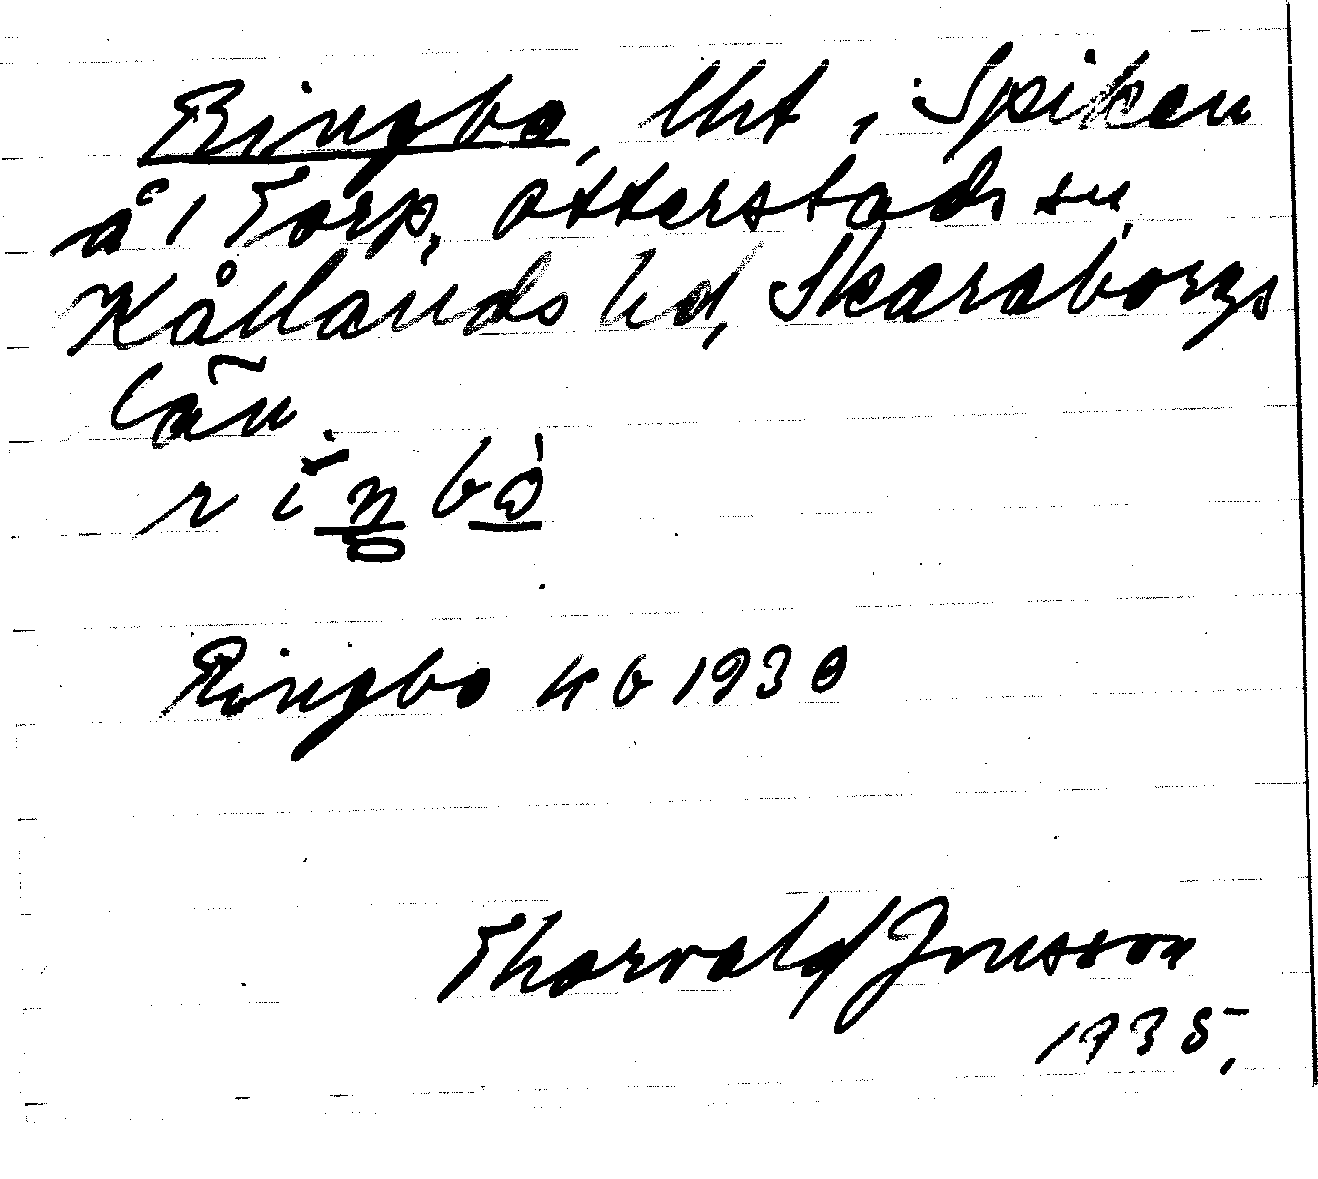 Ringbo, lht, Spiken
å 1 Torp, Otterstads sn,
Kållands hd, Skaraborgs
län.
Ringbo kb 1930
Thorvald Jonsson
1935.